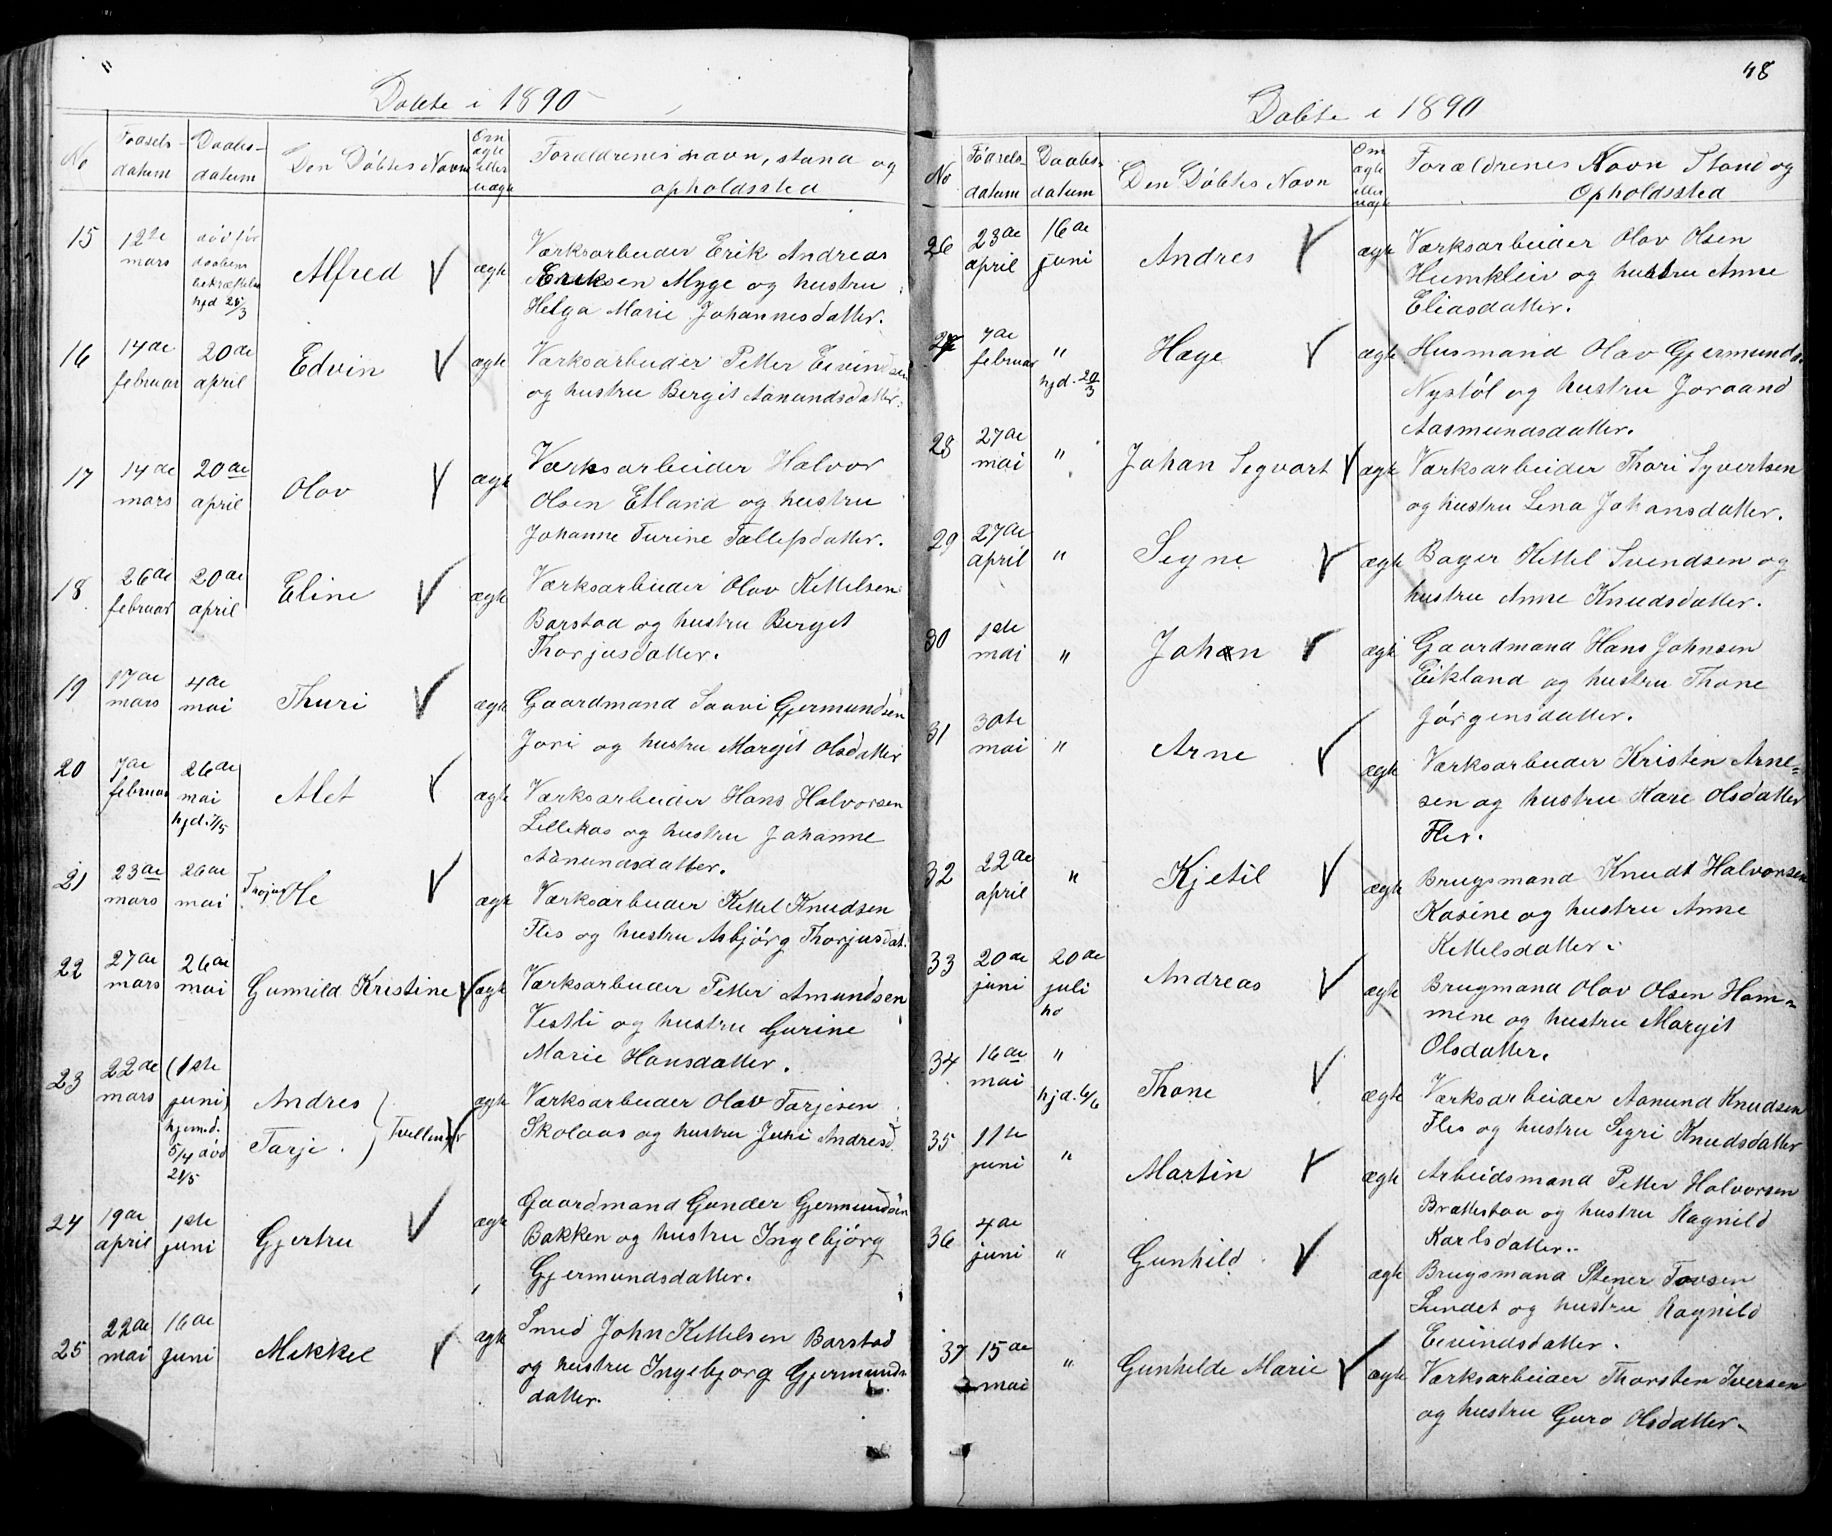 Døbte i 1890
No
Fødsels-
datum
Daabs-
datum
Den Døbtes Navn
Om
ægte
eller
uægte
Forældrenes navn, stand og
opholdssted
15
12te
mars
død før
daabens
bekræftelse
hjd 25/3
Alfred
ægte
Værksarbeider Erik Andreas
Eriksen Myge og hustru
Helga Marie Johannesdatter.
16
14de
februar
20de
april
Edvin
ægte
Værksarbeider Petter Eivindsen
og hustru Bergit Aanundsdatter.
17
14de
mars
20de
april
Olav
ægte
Værksarbeider Halvor
Olsen Etland og hustru
Johanne Turine Tellefsdatter.
18
26de
februar
20de
april
Eline
ægte
Værksarbeider Olav Kittelsen
Barstad og hustru Bergit
Thorjusdatter.
19
17de
mars
4de
mai
Thuri
ægte
Gaardmand Saavi Gjermundsen
Jore og hustru Margit Olsdatter
20
7de
februar
26de
mai
hjd. 1/5
Alet
ægte
Værksarbeider Hans Halvorsen
Lillekas og hustru Johanne
Aanundsdatter.
21
23de
mars
26de
mai
Thojus Ole
ægte
Værksarbeider Kittel Knudsen
Fles og hustru Asbjørg Thorjusdat.
22
27de
mars
26de
mai
Gunnild Kristine
ægte
Værksarbeider Petter Amundsen
Vestli og hustru Gurine
Marie Hansdatter.
23
22de
mars
(1ste
juni)
hjemd.
5/4 død
21/5
Andres
Tarje.
Tvillinger
ægte
Værksarbeider Olav Tarjesen
Skolaas og hustru Juni Andresd
24
19de
april
1ste
juni
Gjertru
ægte
Gaardmand Gunder Gjermundsen
Bakken og hustru Ingebjörg
Gjermundsdatter.
25
22de
mai
16de
juni
Mekkel
ægte
Smed John Kittelsen Barstad
og hustru Ingebjorg Gjermunds-
datter.
48
Døbte i 1890
No
Fødsels-
datum
Daabs-
datum
Den Døbtes Navn
Om
ægte
eller
uægte
Forældrenes Navn Stand og
Opholdssted
26
23de
april
16de
juni
Andres
ægte
Værksarbeider Olav Olsen
Humkleiv og hustru Anne
Eliasdatter.
27
7de
februar
"
hjd. 20/3
Hæge
ægte
Husmand Olav Gjermunds.
Nystöl og hustru Joraand
Aasmundsdatter.
28
27de
mai
"
Johan Segvart
ægte
Værksarbeider Thori Syvertsen
og hustru Lina Johansdatter.
29
27de
april
"
Segne
ægte
Bager Kittel Svendsen og
hustru Anne Knudsdatter.
30
1ste
mai
"
Johan
ægte
Gaardmand Hans Johnsen
Eikland og hustru Thone
Jörgensdatter.
31
30te
mai
"
Arne
ægte
Værksarbeider Kristen Arne-
sen og hustru Kare Olsdatter
Fles.
32
22de
april
"
Kjetil
ægte
Brugsmand Knudt Halvorsen
Kasine og hustru Anne
Kittelsdatter.
33
20de
juni
20de
juli
Andreas
ægte
Brugmand Olav Olsen Ham-
mene og hustru Margit
Olsdatter.
34
16de
mai
"
hjd. 6/6
Thone
ægte
Værksarbeider Aanund Knudsen
Fles og hustru Segri Knudsdatter
35
11te
juni
"
Martin
ægte
Arbeidsmand Petter Halvorsen
Brattestaa og hustru Ragnild
Karlsdatter.
36
4de
juni
"
Gunhild
ægte
Brugsmand Stener Tovsen
Lundet og hustru Ragnild
Eivindsdatter.
37
15de
mai
"
Gunhilde Marie
ægte
Værksarbeider Thorsten Iversen
og hustru Guro Olsdatter.